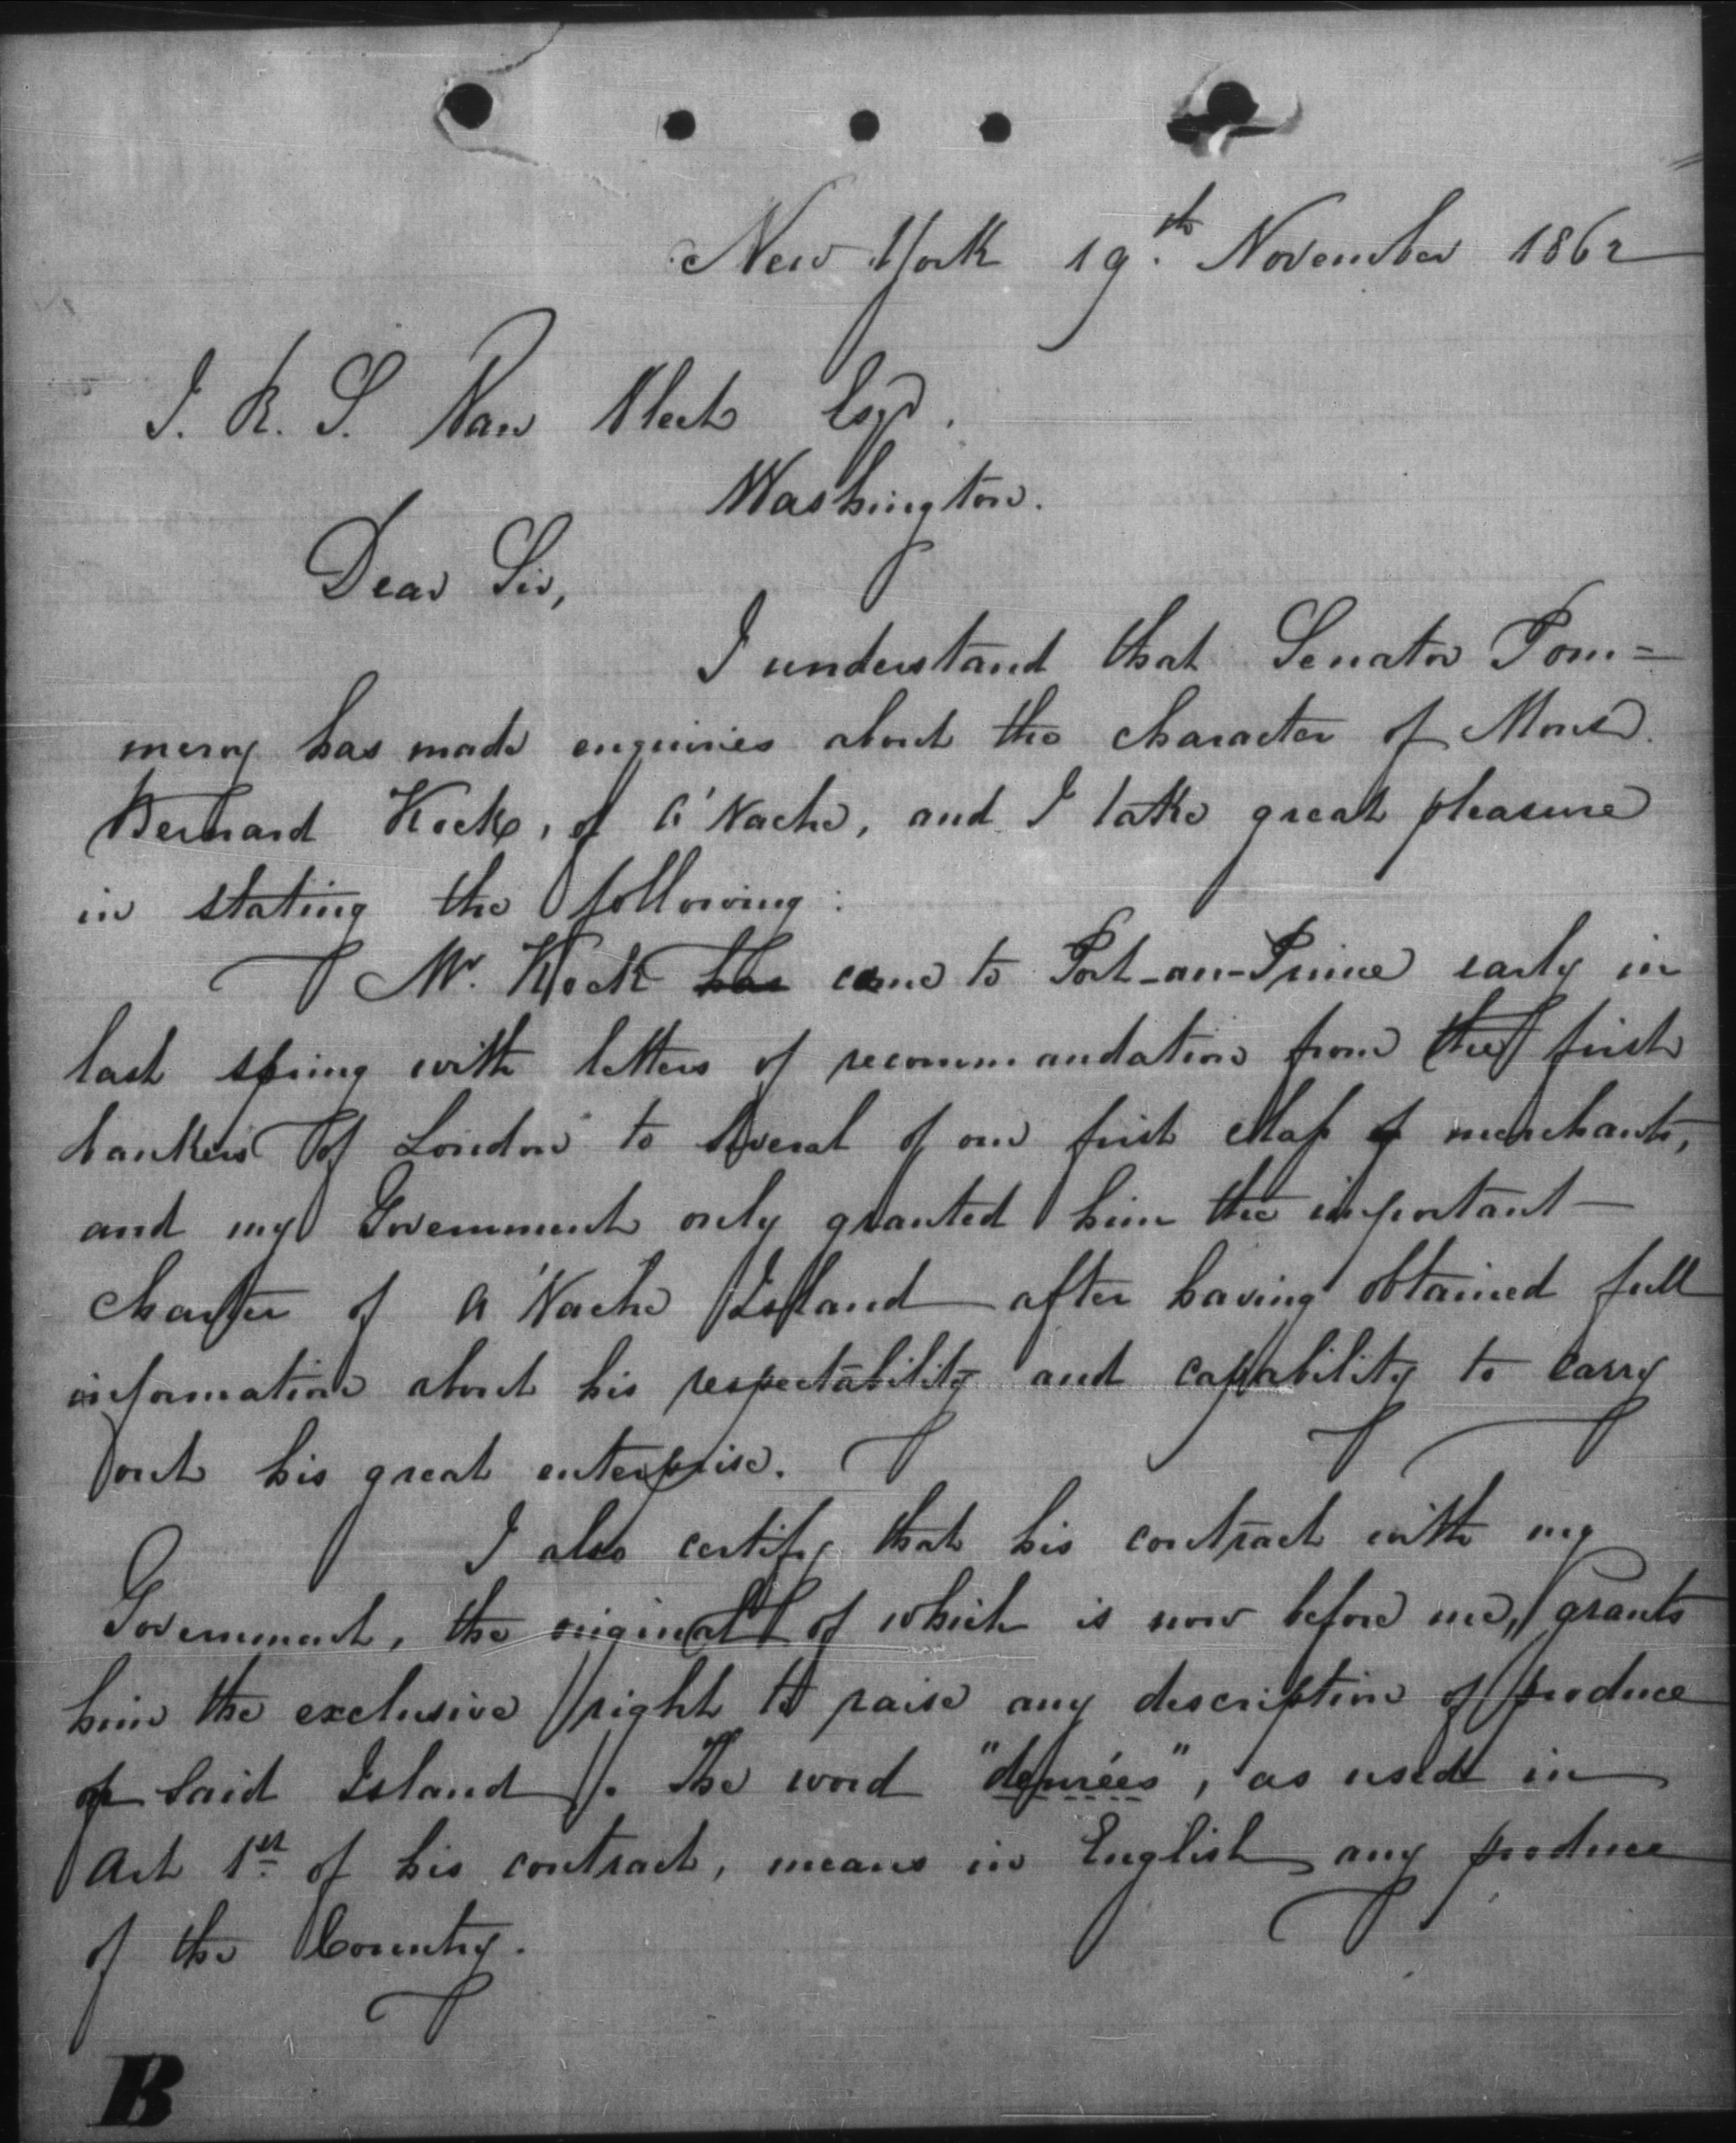 New York 19th. November 1862
J. R. S. Van Vleet Esqr.
Washington.
Dear Sir,
I understand that Senator Pom=
meroy has made enquiries about the character of Monsr.
Bernard Kock, of A'Vache, and I take great pleasure
in stating the following:
Mr. Kock has came to Port-au-Prince early in
last spring with letters of recommandation from the first
bankers of London to several of our first class of merchants,
and my Government only granted him the important
charter of A'Vache Island after having obtained full
information about his respectability and capability to carry
out his great enterprise.
I also certify that his contract with my
Government, the original of which is now before me, grants
him the exclusive right to raise any description of produce
of said Island. The word "denrées", as used in
Art 1st. of his contract, means in English any produce
of the Country.
B